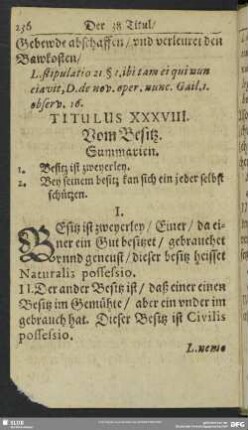 256 Der 38 Titul/
Gebewde abschaffen/ vnd verleuret den
Bawkosten/
L. stipulatio 21 § 1, ibi tam ei qui nun
ciavit, D. de nov. oper. nunc. Gail. 1.
observ. 16.
TITULUS XXXVIII.
Vom Besitz.
Summarien.
1. Besitz ist zweyerley.
2. Bey seinem besitz kan sich ein jeder selbst
schützen.
I.
BEsitz ist zweyerley/ Einer/ da ei-
ner ein Gut besitzet/ gebrauchet
vnnd geneust/ dieser besitz heisset
Naturalis possessio.
II. Der ander Besitz ist/ daß einer einen
Besitz im Gemühte/ aber ein vnder im
gebrauch hat. Dieser Besitz ist Civilis
possessio.
L. nemo
SLUB
DFG